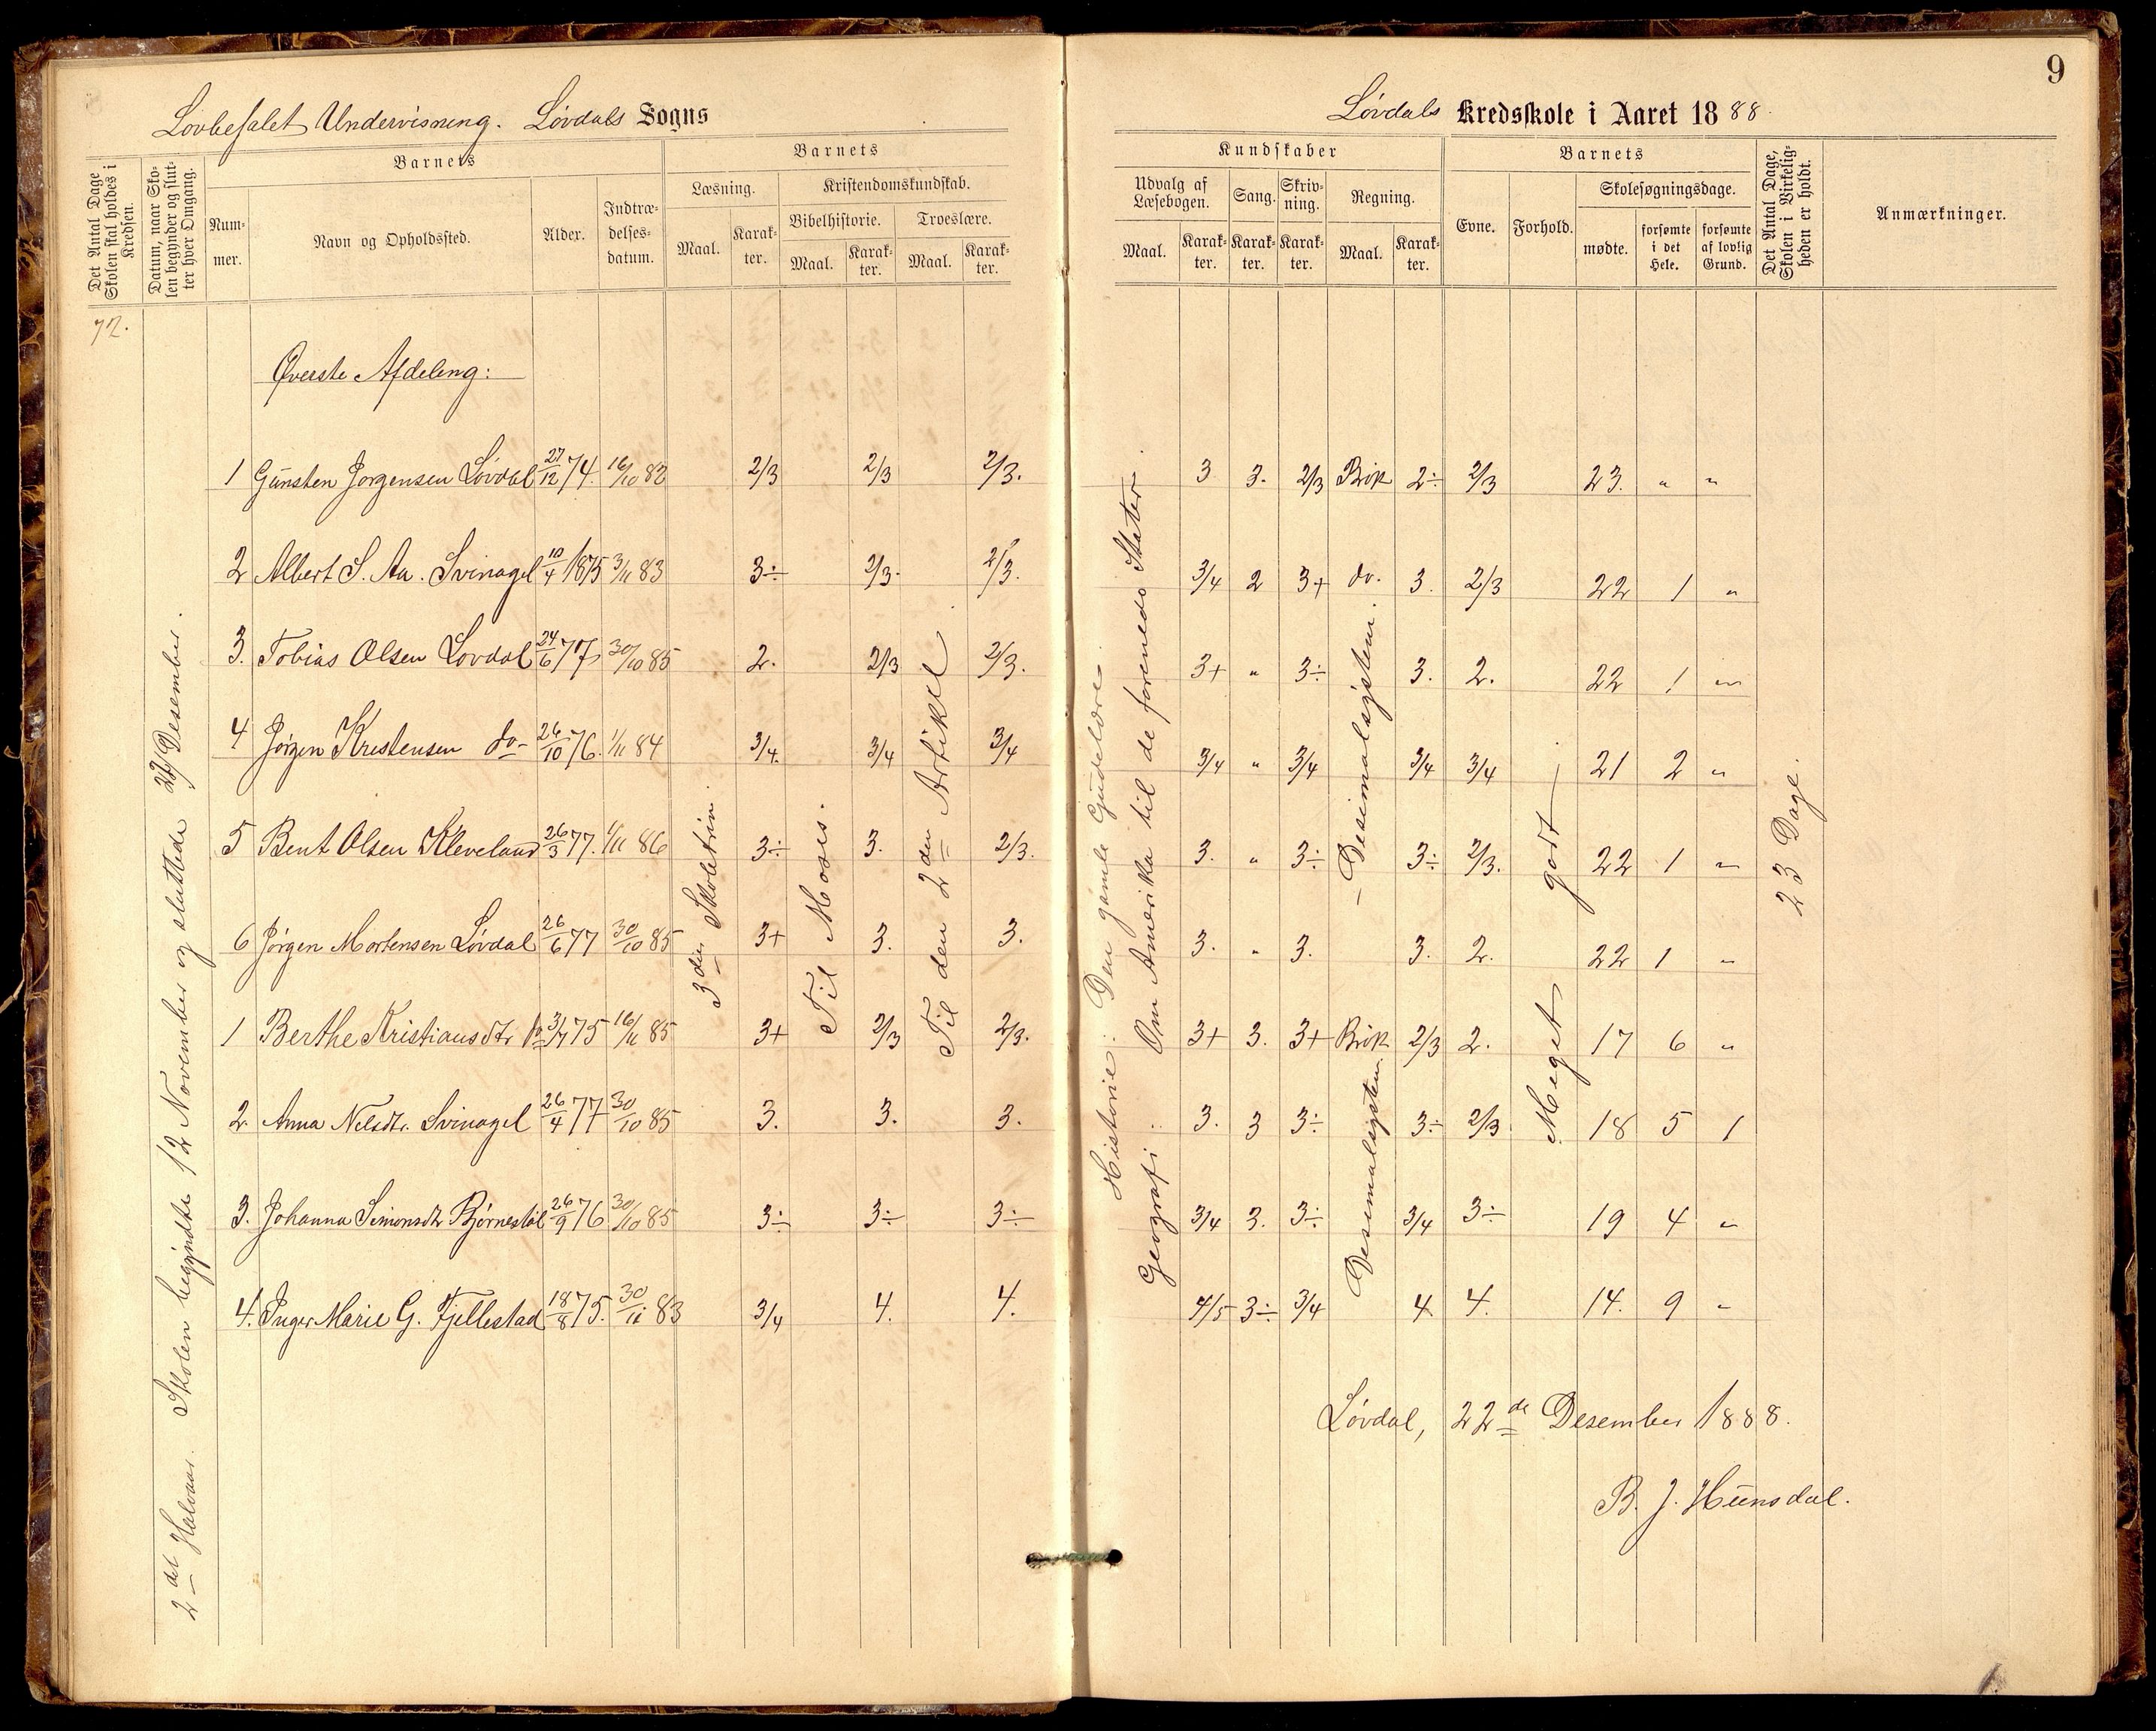 Lovbefalet Undervisning. Løvdals Sogns
Det Antal Dage Skolen skal holdes i Kredsen.
Datum, naar Skolen begynder og slutter hver Omgang.
Barnets
Nummer.
Navn og Opholdssted.
Alder.
Indtrædelsesdatum.
Barnets
Læsning.
Maal.
Karakter.
Kristendomskundskab.
Bibelhistorie.
Maal.
Karakter.
Troeslære.
Maal.
Karakter.
72.
2det Halvaar. Skolen begyndte 12 November og sluttede 22/ Desember.
Øverste Afdeling:
1 Gunsten Jørgensen Løvdal 27/12 74. 16/10 82 2/3 2/3 2/3.
2 Albert S. Aa. Svinagel 10/4 1875 3/11 83 3÷ 2/3. 2/3.
3. Tobias Olsen Løvdal 24/6 77 30/10 85 2. 2/3 2/3.
4 Jørgen Kristensen do- 26/10 76. 1/11 84 3/4. 3/4 3/4
5 Bent Olsen Kleveland 26/3 77. 4/11 86 3÷ 3. 2/3.
6 Jørgen Mortensen Løvdal 26/6 77 30/10 85 3+ 3. 3.
1 Berthe Kristiansdtr do 3/7 75 16/11 85 3+ 2/3 2/3.
2. Anna Nelsdtr. Svinagel 26/4 77 30/10 85 3. 3. 3.
3. Johanna Simonsdtr Bjørnestøl 26/9 76 30/10 85 3÷ 3÷ 3÷
4. Inger Marie G. Fjellestad 18/8 75. 30/11 83 3/4 4. 4.
3die Skoletrin.
Til Moses.
Til den 2den Artikel
9
Løvdals Kredsskole i Aaret 1888.
Kundskaber
Udvalg af Læsebogen.
Maal.
Karakter.
Sang.
Karakter.
Skrivning.
Karakter.
Regning.
Maal.
Karakter.
Barnets
Evne.
Forhold.
Skolesøgningsdage.
mødte.
forsømte i det Hele.
forsømte af lovlig Grund.
Det Antal Dage, Skolen i Virkeligheden er holdt.
Anmærkninger.
Historie: Den gamle Gudelære.
Geografi: Om Amerika til de forenede Stater.
3 3. 2/3 Brøk 2÷ 2/3 23. " "
3/4 2 3+ do. 3. 2/3 22 1 "
3+ " 3÷ 3. 2. 22 1 "
3/4 " 3/4 3/4 3/4 21 2 "
3. " 3÷ 3÷ 2/3. 22 1 "
3. " 3. 3. 2. 22 1 "
3+ 3. 3+ Brøk 2/3 2. 17 6 "
3. 3 3÷ 3÷ 2/3 18 5 1
3/4 3. 3÷ 3/4 3÷ 19 4 "
4/5 3÷ 3/4 4 4. 14. 9 "
– Desimalsystem.
Desimalsystem
Meget godt
23 Dage.
Løvdal, 22de Desember 1888.
B. J. Hunsdal.